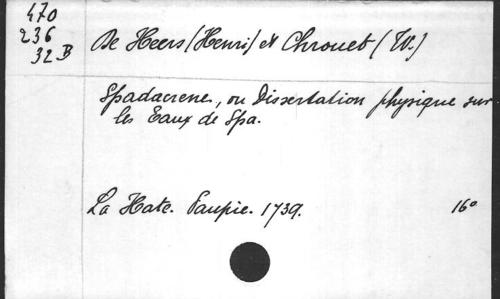 470
236
32 B
De Heers (Henri) et Chrouet (W.)
Spadacrene, ou Dissertation physique sur
les Eaux de Spa.
La Hate. Paupie. 1739.
16°